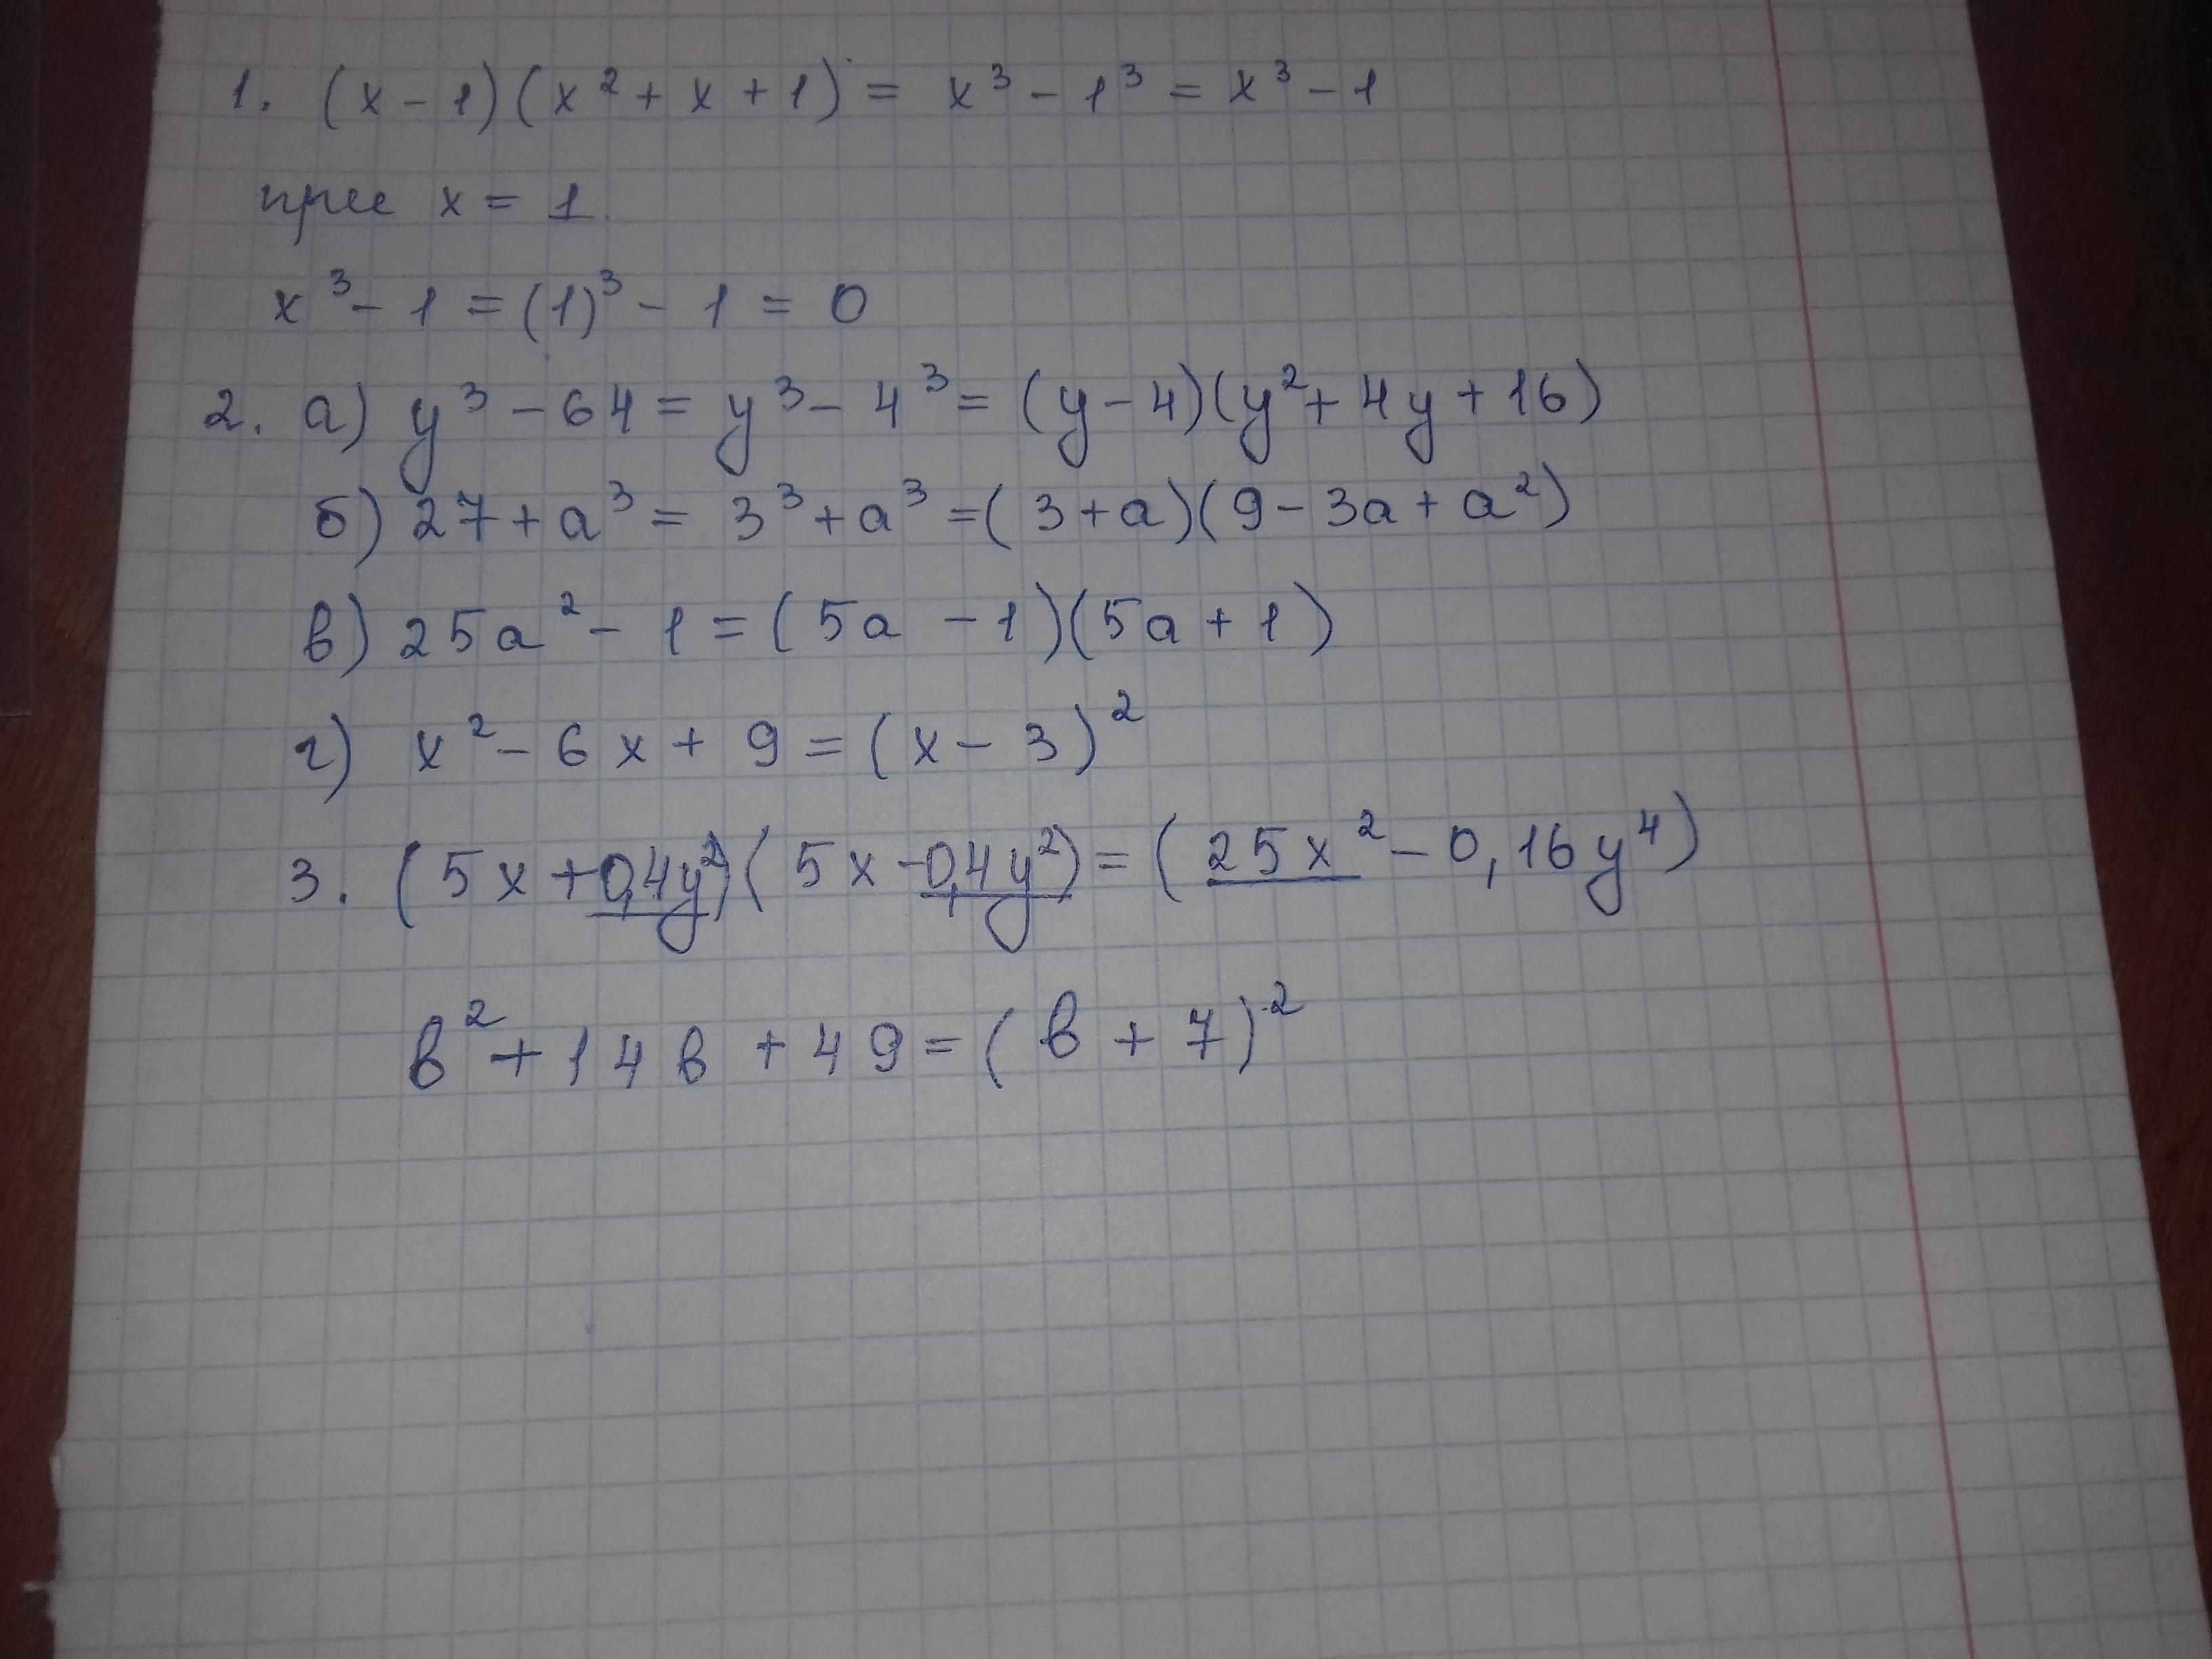 1. (x - 1)(x² + x + 1) = x³ - 1³ = x³ - 1
при x = 1
x³ - 1 = (1)³ - 1 = 0
2. а) y³ - 64 = y³ - 4³ = (y - 4)(y² + 4y + 16)
б) 27 + a³ = 3³ + a³ = (3 + a)(9 - 3a + a²)
в) 25a² - 1 = (5a - 1)(5a + 1)
г) x² - 6x + 9 = (x - 3)²
3. (5x + 0,4y²)(5x - 0,4y²) = (25x² - 0,16y⁴)
в² + 14в + 49 = (в + 7)²